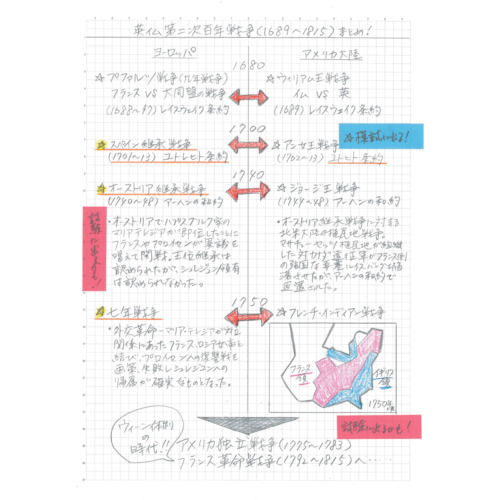 英仏第二次百年戦争(1689〜1815)まとめ!
ヨーロッパ
アメリカ大陸
1680
☆プファルツ戦争(九年戦争)
フランス VS 大同盟の戦争
(1688〜97) レイスウェイク条約
☆ウィリアム王戦争
仏 VS 英
(1689) レイスウェイク条約
1700
☆スペイン継承戦争
(1701〜13) ユトレヒト条約
☆アン女王戦争
(1702〜13) ユトレヒト条約
1740
☆オーストリア継承戦争
(1740〜48) アーヘンの和約
・オーストリアでハプスブルク家の
マリアテレジアが即位したことに
フランスやプロイセンが異議を
唱えて開戦。王位継承は
認められたが、シュレジェン領有
は認められなかった。
☆ジョージ王戦争
(1744〜48) アーヘンの和約
・オーストリア継承戦争に対する
北米大陸の植民地戦争。
マサチューセッツ植民地が組織
した
の和約で
返還された。
1750
☆七年戦争
・外交革命―マリア・テレジアが対立
関係にあったフランス、ロシアと
結び、プロイセンへの復讐戦を
画策。失敗しシュレジェンの
帰属が確実なものとなった。
☆フレンチ・インディアン戦争
フランス
領
イギリス
領
1750年
試験に出るかも!
ウィーン体制
の
時代!!
アメリカ独立戦争(1775〜1783)
フランス革命戦争(1792〜1815)へ……